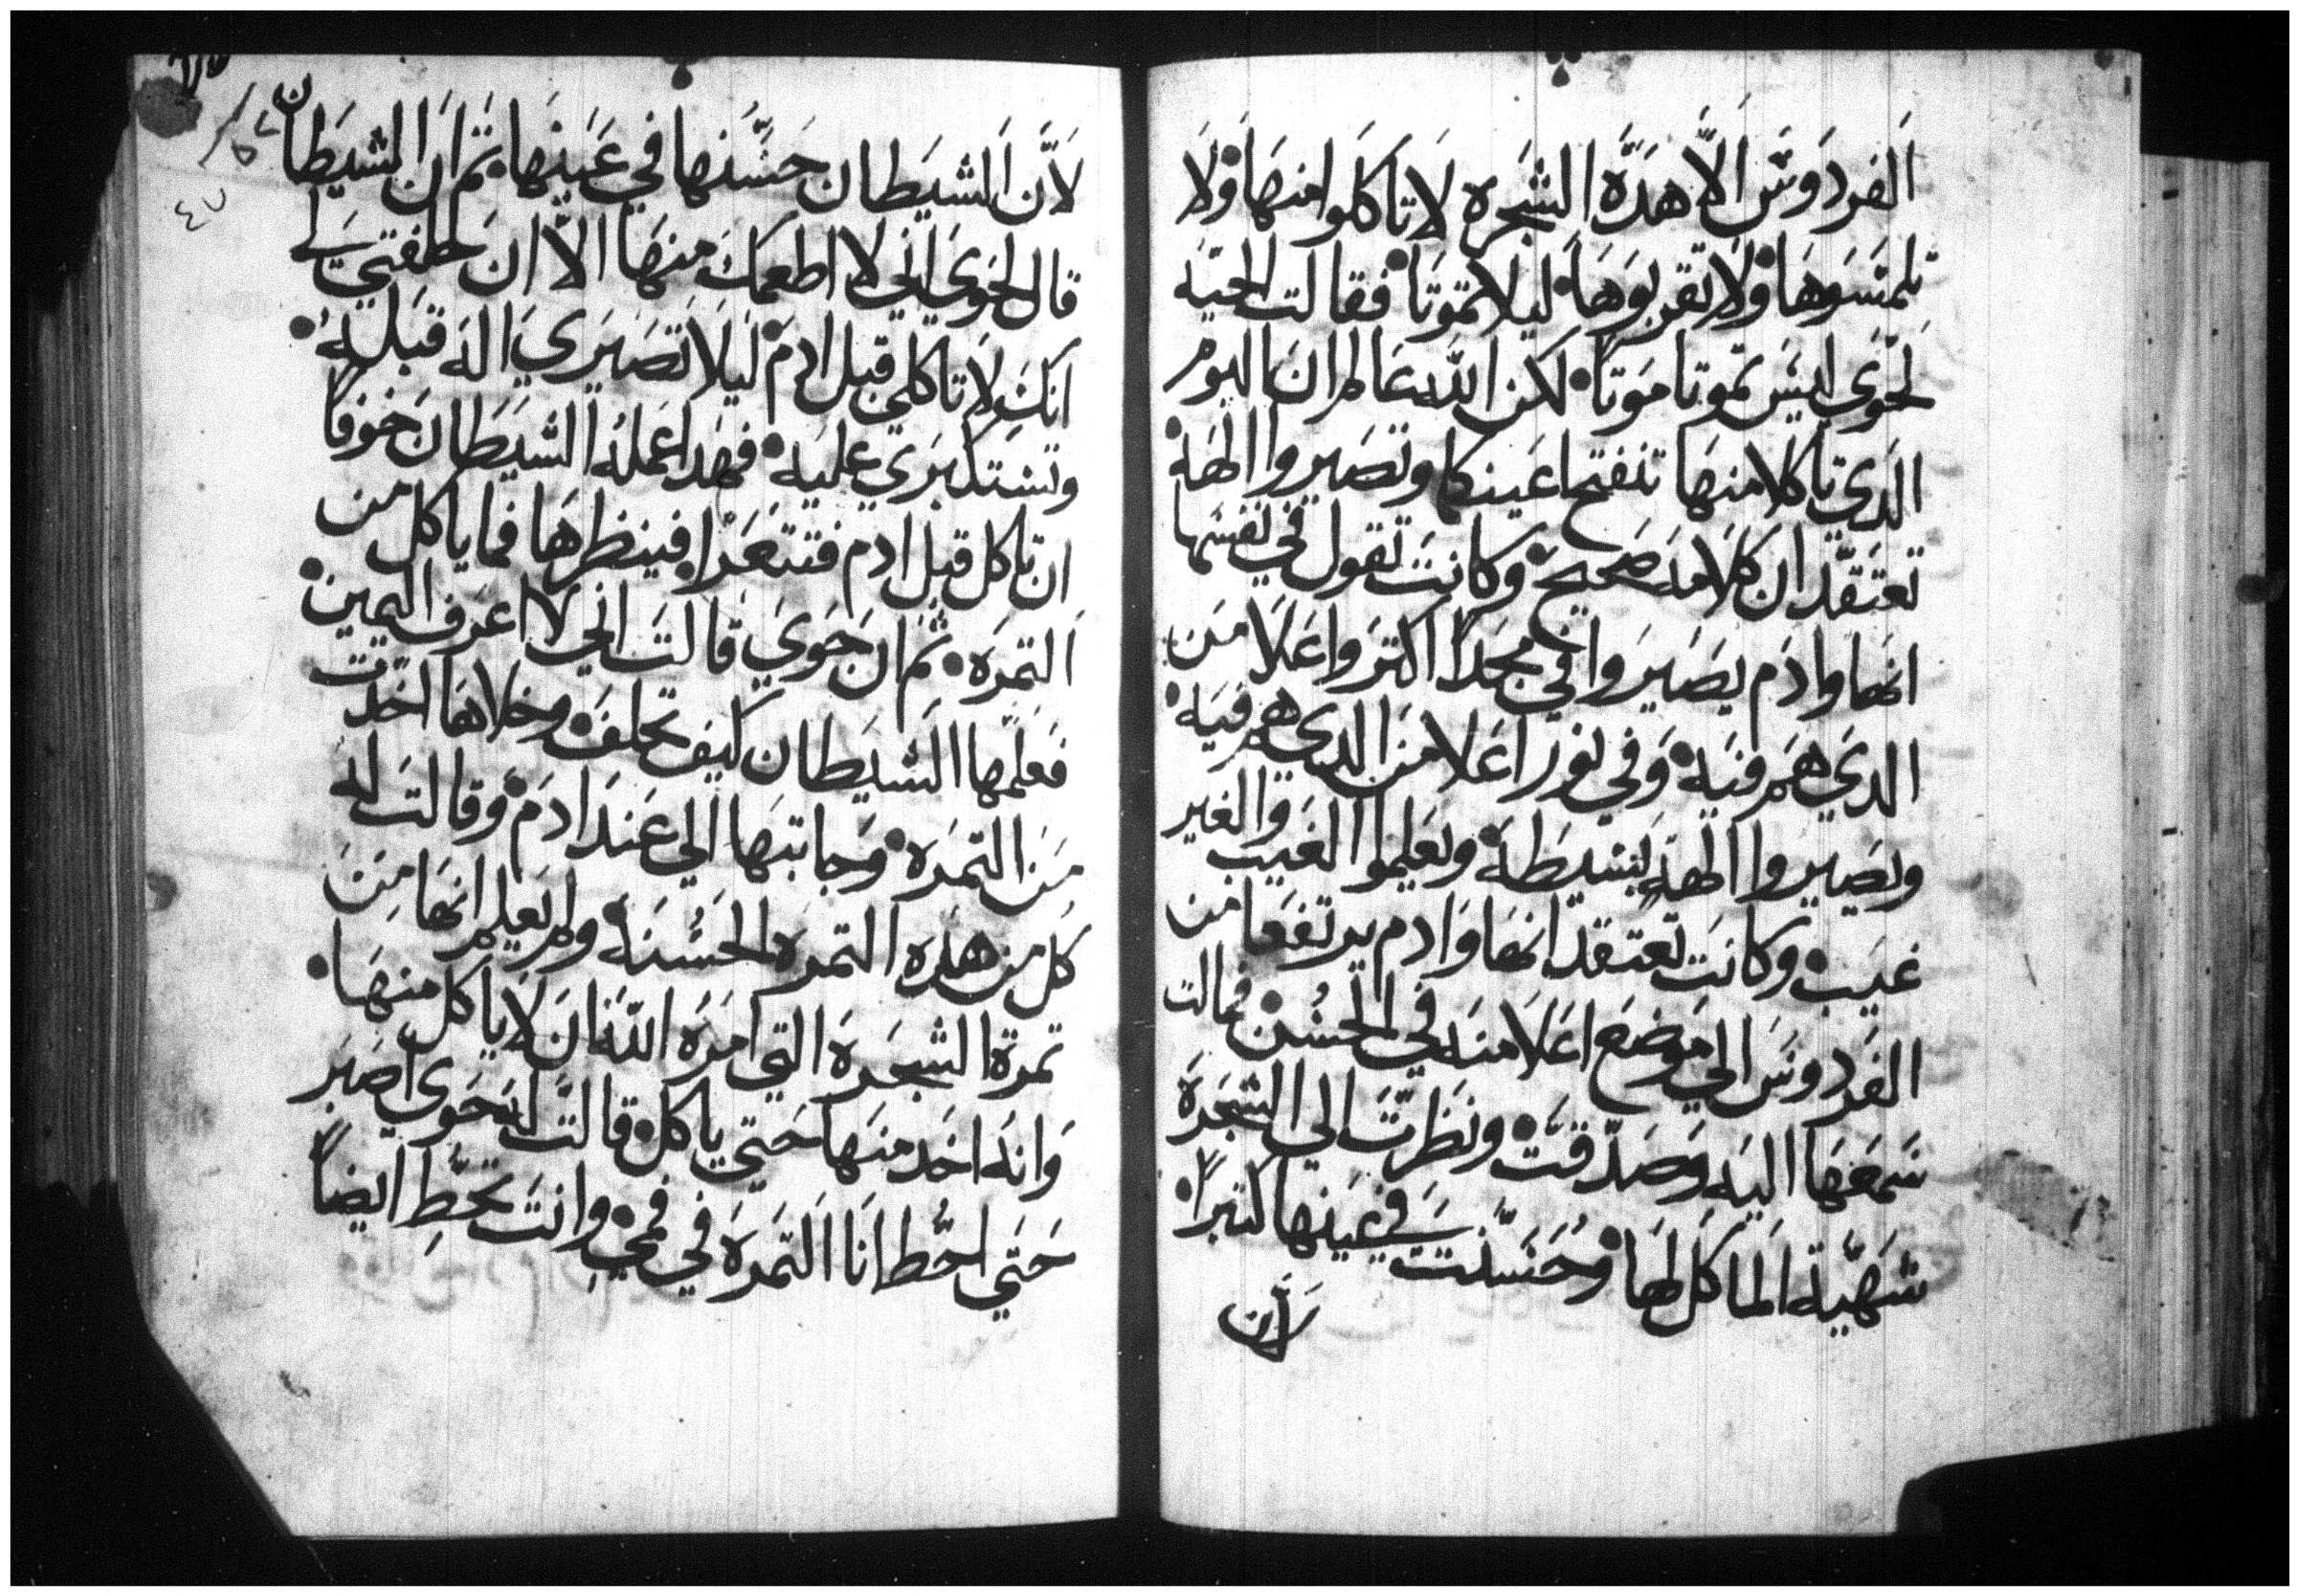 الفردوس الا هده الشجره لا تاكلوا منها ولا
تلمسوها ولا تقربوها ليلا تموتا فقالت الحيه
لحوي ليس تموتا موتا لكن الله عالم ان اليوم
الدي تاكلا منها تنفتح اعينكما وتصيروا الهه
تعتقد ان كلامه صحيح وكانت تقول في نفسها
انها وادم يصيروا في مجدا اكتر واعلا من
الدي هم فيه وفي نور اعلا من الدي هم فيه
ويصيروا الهه بسيطه ويعلموا الغيب والغير
غيب وكانت تعتقد انها وادم يرتفعا من
الفردوس الي موضع اعلا منه في الحسن فمالت
سمعها اليه وصدقت ونظرت الي الشجره
شهيه الماكل لها وحسنت في عينها كتيرا
لان
لان الشيطان حسنها في عينها تم ان الشيطان
قال لحوي اني لا اطعمك منها الا ان حلفتي لي
انك لا تاكلي قبل ادم ليلا تصيري اله قبله
وتستكبري عليه فهدا عمله الشيطان خوفا
ان تاكل قبل ادم فتتعرا فينظرها فما ياكل من
التمره تم ان حوي قالت اني لا اعرف اليمين
فعلمها الشيطان كيف تحلف وخلاها اخدت
من التمره وجابتها الي عند ادم وقالت له
كل من هده التمره الحسنه ولم يعلم انها من
تمرة الشجره التي امره الله ان لا ياكل منها
وانه اخد منها حتي ياكل قالت له حوي اصبر
حتي احط انا التمره في فمي وانت تحط ايضا
٤٧